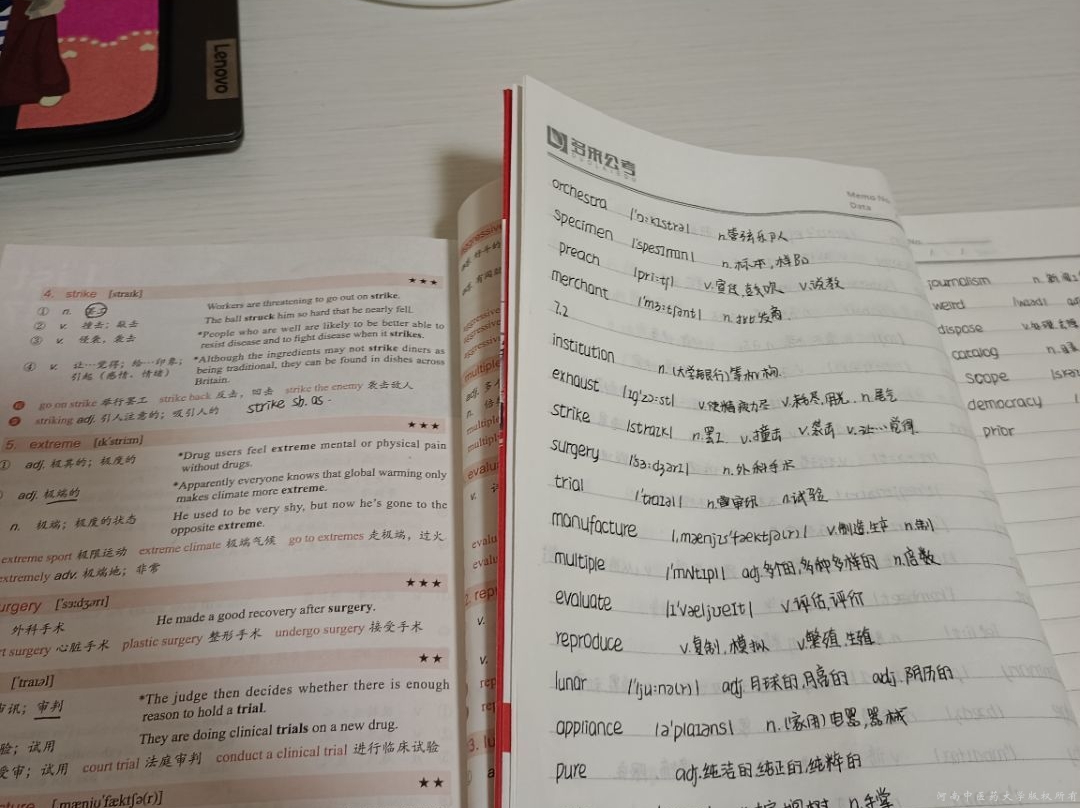 Lenovo
4. strike [straɪk] ★★★
① n. 罢工 Workers are threatening to go out on strike.
② v. 撞击；敲击 The ball struck him so hard that he nearly fell.
③ v. 侵袭，袭击 *People who are well are likely to be better able to
resist disease and to fight disease when it strikes.
④ v. 让…觉得；给…印象； *Although the ingredients may not strike diners as
引起（感情、情绪） being traditional, they can be found in dishes across
Britain.
go on strike 举行罢工 strike back 反击，回击 strike the enemy 袭击敌人
striking adj. 引人注意的；吸引人的 strike sb. as
★★★
5. extreme [ɪkˈstriːm]
① adj. 极其的；极度的 *Drug users feel extreme mental or physical pain
without drugs.
adj. 极端的 *Apparently everyone knows that global warming only
makes climate more extreme.
n. 极端；极度的状态 He used to be very shy, but now he's gone to the
opposite extreme.
extreme sport 极限运动 extreme climate 极端气候 go to extremes 走极端，过火
extremely adv. 极端地；非常
★★★
urgery [ˈsɜːdʒərɪ]
外科手术 He made a good recovery after surgery.
rt surgery 心脏手术 plastic surgery 整形手术 undergo surgery 接受手术
★★
[ˈtraɪəl]
审讯；审判 *The judge then decides whether there is enough
reason to hold a trial.
验；试用 They are doing clinical trials on a new drug.
受审；试用 court trial 法庭审判 conduct a clinical trial 进行临床试验
★★
cture [ˌmænjuˈfæktʃə(r)]
aggressive
multiple
evalua
多来公考
DUOLAIGON
Memo No.
Data
orchestra /ˈɔːkɪstrə/ n.管弦乐队
specimen /ˈspesɪmɪn/ n.标本,样品
preach /priːtʃ/ v.宣传,鼓吹 v.说教
merchant /ˈmɜːtʃənt/ n.批发商
7.2
institution n.(大学银行)等机构
exhaust /ɪgˈzɔːst/ v.使精疲力尽 v.耗尽,用光 n.尾气
strike /straɪk/ n.罢工 v.撞击 v.袭击 v.让…觉得
surgery /ˈsɜːdʒərɪ/ n.外科手术
trial /ˈtraɪəl/ n.审讯 n.试验
manufacture /ˌmænjʊˈfæktʃə(r)/ v.制造,生产 n.制
multiple /ˈmʌltɪpl/ adj.多个的,多种多样的 n.倍数
evaluate /ɪˈvæljʊeɪt/ v.评估,评价
reproduce v.复制,模拟 v.繁殖,生殖
lunar /ˈljuːnə(r)/ adj.月球的,月亮的 adj.阴历的
appliance /əˈplaɪəns/ n.(家用)电器,器械
pure adj.纯洁的,纯正的,纯粹的
journalism n.新
weird /wɪəd/
dispose v.处理
catalog n.目录
scope
democracy
prior
河南中医药大学版权所有